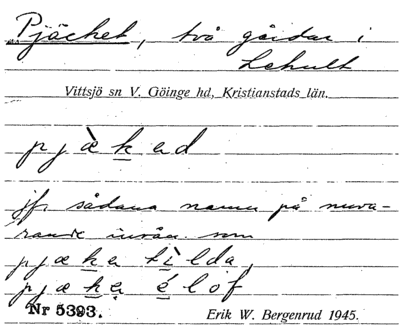 Pjäcket, två gårdar i
Lehult
Vittsjö sn V. Göinge hd, Kristianstads län.
pjæ̀kəd
jfr sådana namn på nuva-
rande invån. som
pjækə tìlda,
pjækə élof
Nr 5393. Erik W. Bergenrud 1945.